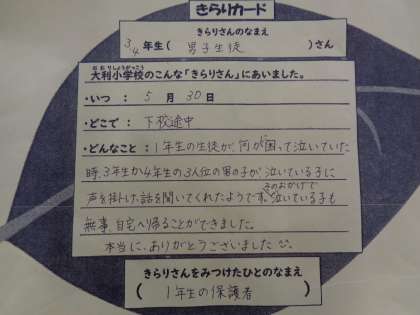 きらりカード
きらりさんのなまえ
3/4年生( 男子生徒 )さん
おおりしょうがっこう
大利小学校のこんな「きらりさん」にあいました。
・いつ : 5月30日
・どこで : 下校途中
・どんなこと : 1年生の生徒が、何か困って泣いていた
時、3年生か4年生の3人位の男の子が、泣いている子に
声を掛けた話を聞いてくれたようです。そのおかげで泣いている子も
無事自宅へ帰ることができました。
本当に、ありがとうございました
きらりさんをみつけたひとのなまえ
( 1年生の保護者 )